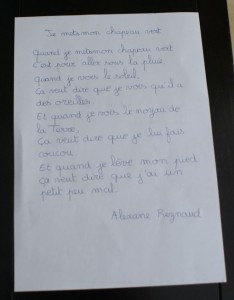 Je mets mon chapeau vert
Quand je mets mon chapeau vert
c'est pour aller sous la pluie
Quand je vois le soleil,
Ça veut dire que je vois qu'il a
des oreilles.
Et quand je vois le noyau de
la Terre,
Ça veut dire que je lui fais
coucou.
Et quand je lève mon pied
Ça veut dire que j'ai un
petit peu mal.
Reynaud